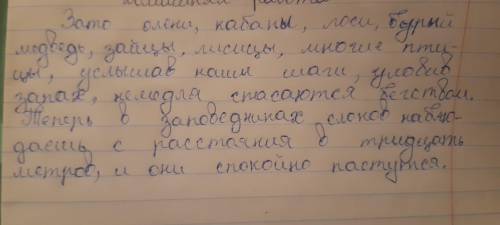 Домашняя работа
Зато олени, кабаны, лоси, бурый
медведь, зайцы, лисицы, многие пти-
цы, услышав наши шаги, уловив
запах, немедля спасаются бегством.
Теперь в заповедниках слонов наблю-
даешь с расстояния в тридцать
метров, и они спокойно пасутся.